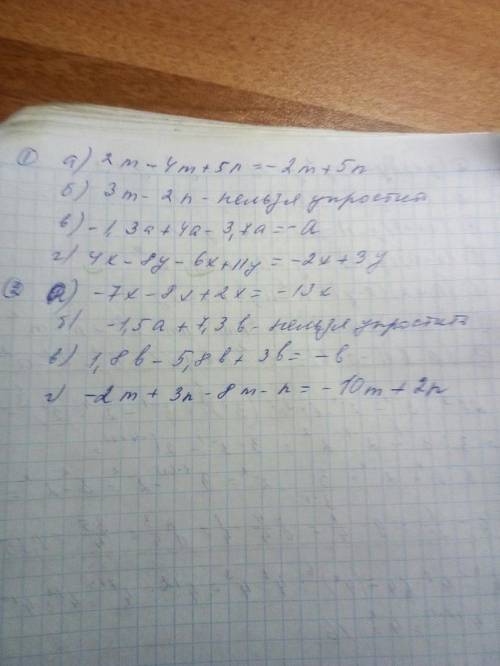 ① а) 2m - 4m + 5n = -2m + 5n
б) 3m - 2n - нельзя упростит
в) -1,3a + 4a - 3,7a = -a
г) 4x - 8y - 6x + 11y = -2x + 3y
② а) -7x - 8x + 2x = -13x
б) -1,5a + 7,3b - нельзя упростить
в) 1,8b - 5,8b + 3b = -b
г) -2m + 3n - 8m - n = -10m + 2n